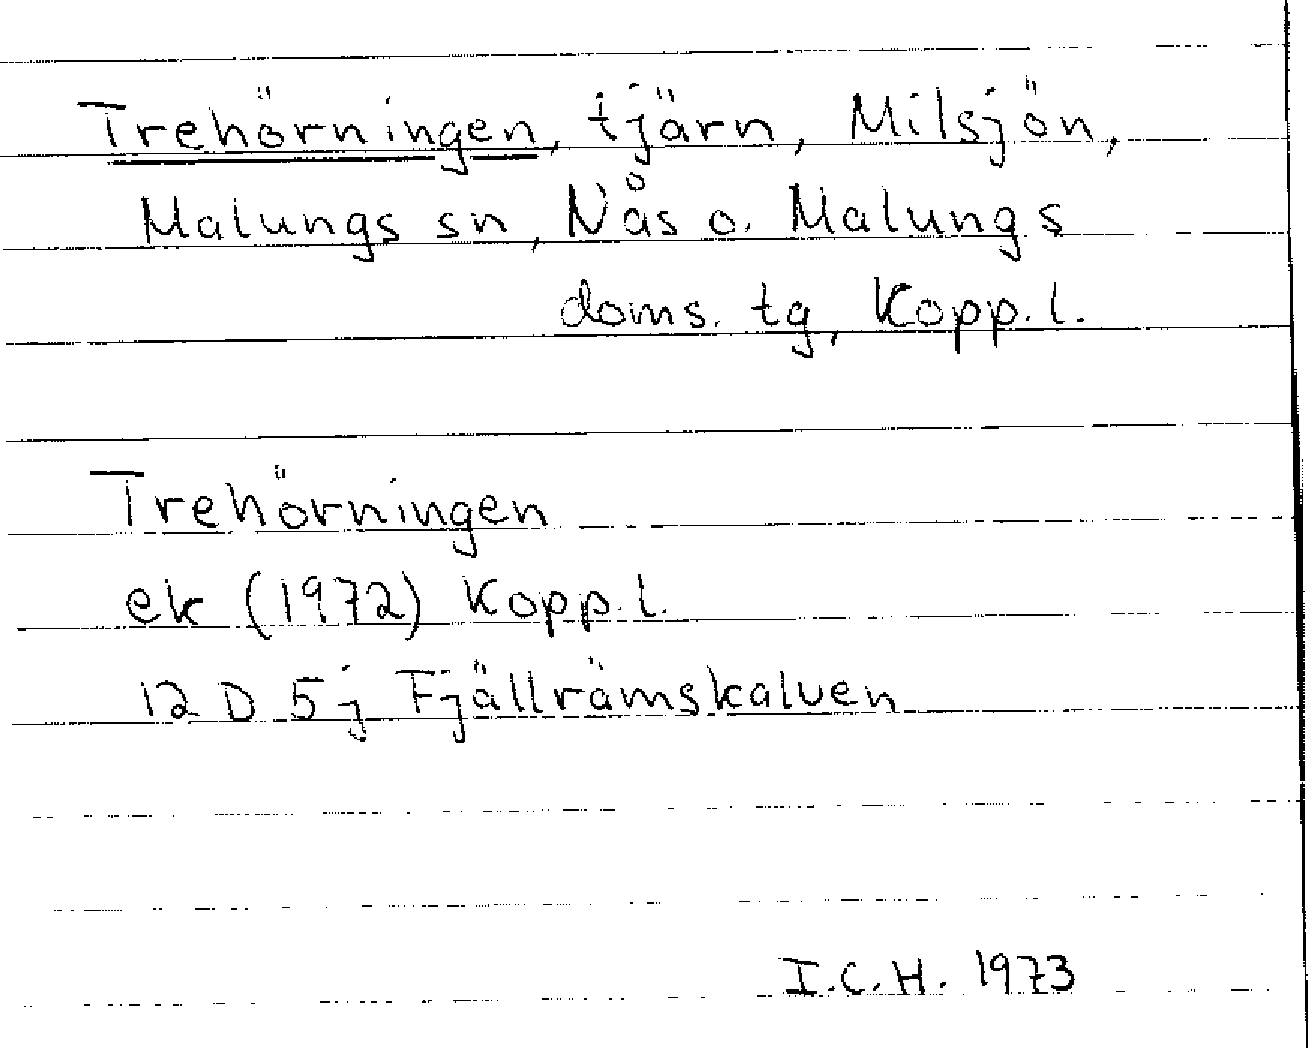 Trehörningen, tjärn, Milsjön,
Malungs sn, Nås o. Malungs
doms. tg, Kopp. l.
Trehörningen
ek (1972) Kopp. l.
12 D 5j Fjällrämskalven
I.C.H. 1973